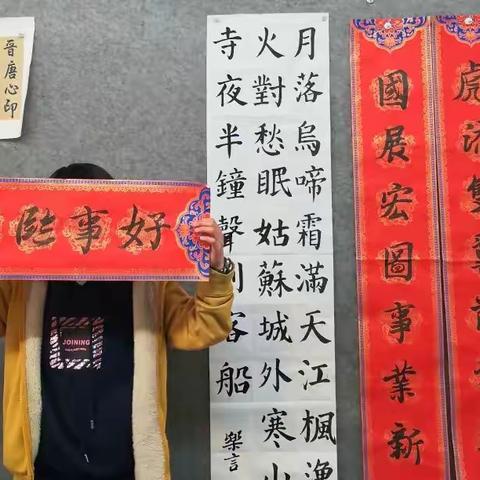 虎
國展宏圖事業新
月落烏啼霜滿天江楓漁
火對愁眠姑蘇城外寒山
寺夜半鐘聲到客船
樂言
好事臨
晉唐心印
JOINING